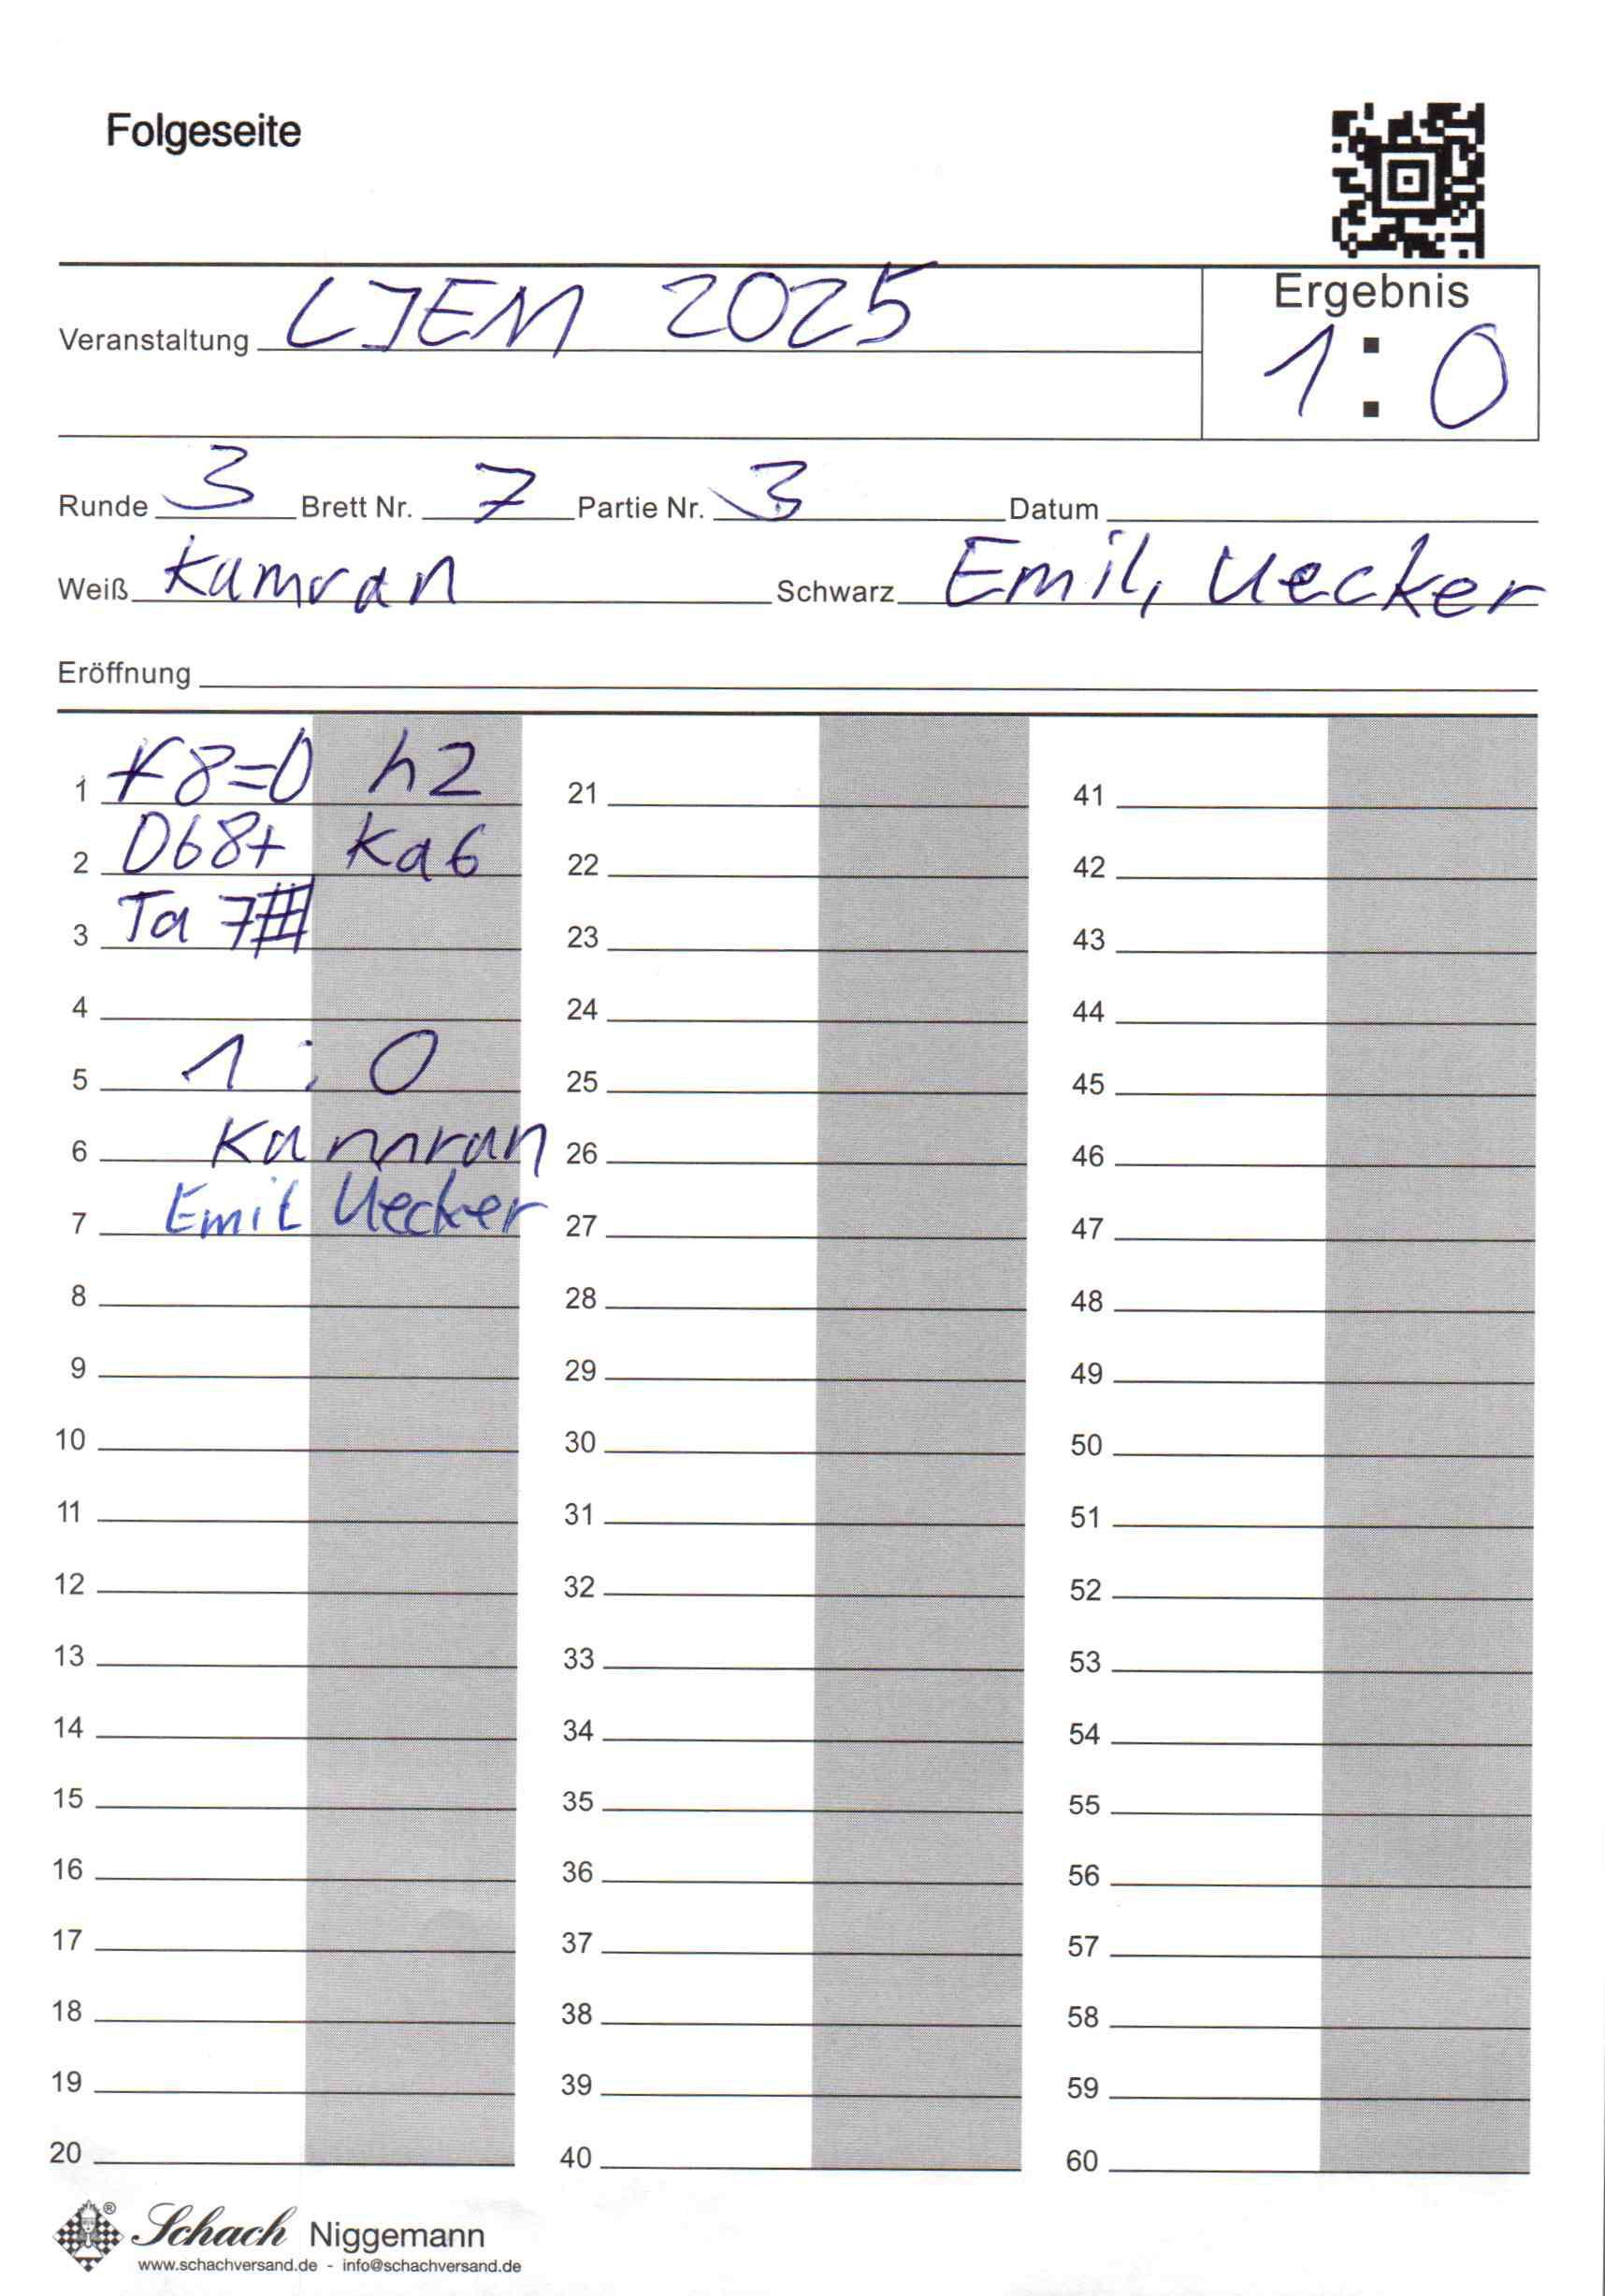 Folgeseite
Veranstaltung LJEM 2025
Ergebnis
1:0
Runde 3 Brett Nr. 7 Partie Nr. 3 Datum
Weiß Kamran Schwarz Emil, Uecker
Eröffnung
1 f8=D h2 21 41
2 Db8+ Ka6 22 42
3 Ta7# 23 43
4 24 44
5 1:0 25 45
6 Kamran 26 46
7 Emil Uecker 27 47
8 28 48
9 29 49
10 30 50
11 31 51
12 32 52
13 33 53
14 34 54
15 35 55
16 36 56
17 37 57
18 38 58
19 39 59
20 40 60
® Schach Niggemann
www.schachversand.de - info@schachversand.de